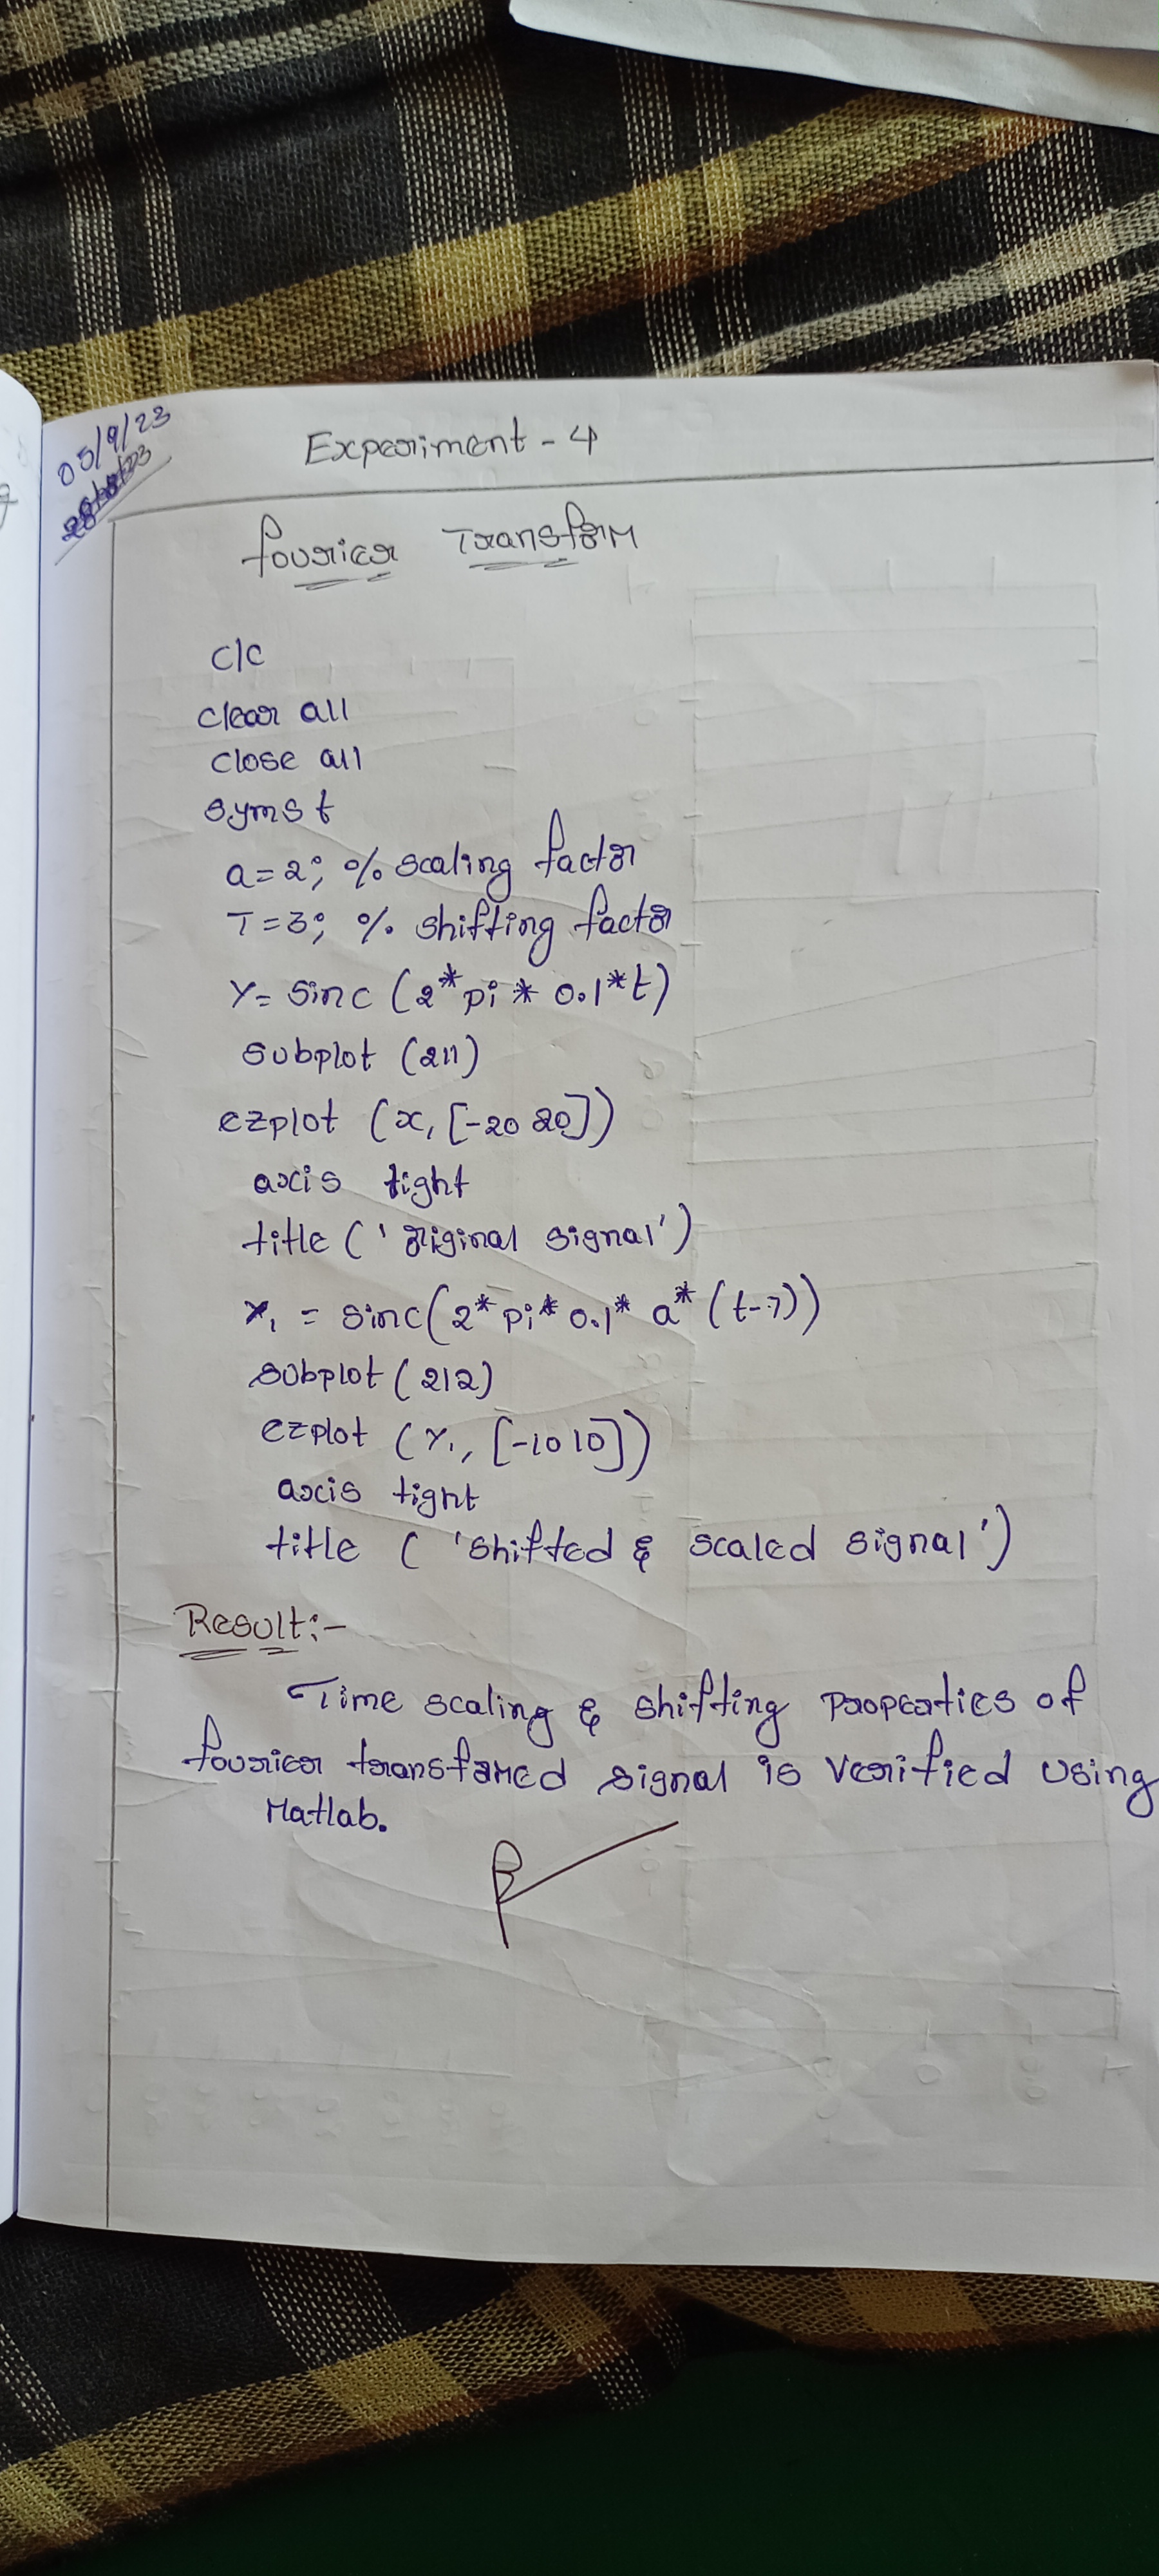 05/9/23
Experiment - 4
Fourier Transform
clc
clear all
close all
syms t
a=2; % scaling factor
T=3; % shifting factor
Y= sinc (2*pi * 0.1*t)
subplot (211)
ezplot (x, [-20 20])
axis tight
title ('original signal')
x1 = sinc(2*pi*0.1* a* (t-7))
subplot (212)
ezplot (Y1, [-10 10])
axis tight
title ( 'shifted & scaled signal')
Result:-
Time scaling & shifting properties of
fourier transformed signal is verified using
Matlab.